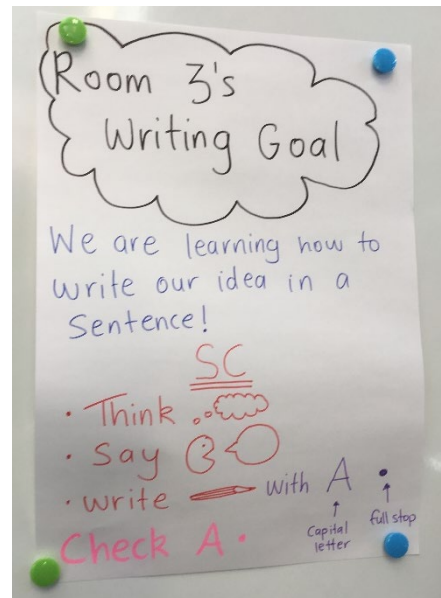 Room 3's
Writing Goal
We are learning how to
write our idea in a
Sentence!
SC
• Think
• Say
• write with A .
Capital
letter
full stop
Check A .